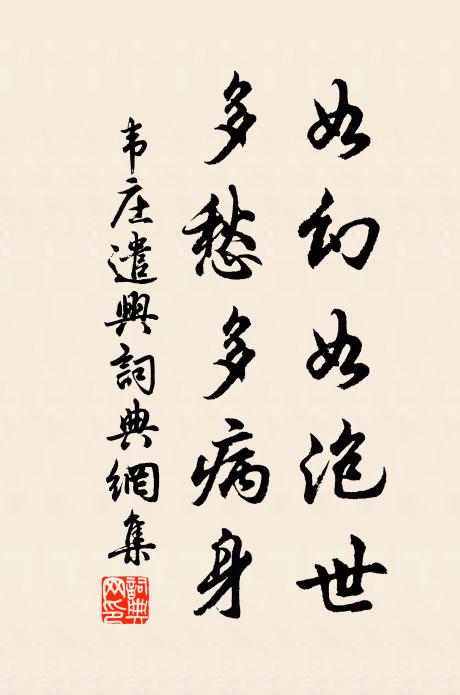 如幻如泡世
多愁多病身
韦庄遣興詞典網集
詞典網印